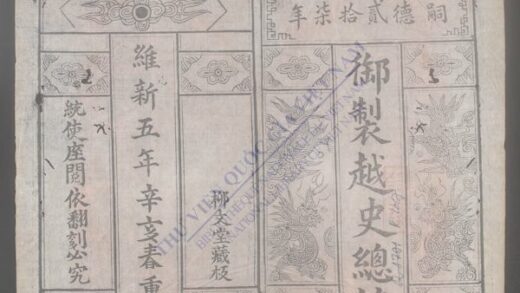 嗣德貳拾柒年
御製越史總
柳文堂藏板
維新五年辛亥春重
統使座閱依翻刻必究
THƯ VIỆN QUỐC GIA VIỆT NAM